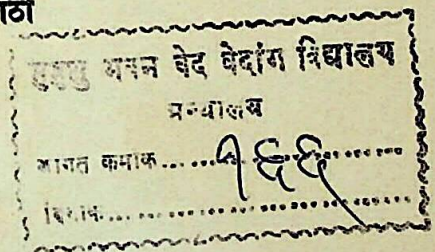 ठा
मुमुक्षु भवन वेद वेदांग विद्यालय
ग्रन्थालय
आगत क्रमाक......१६६......
दिनांक......